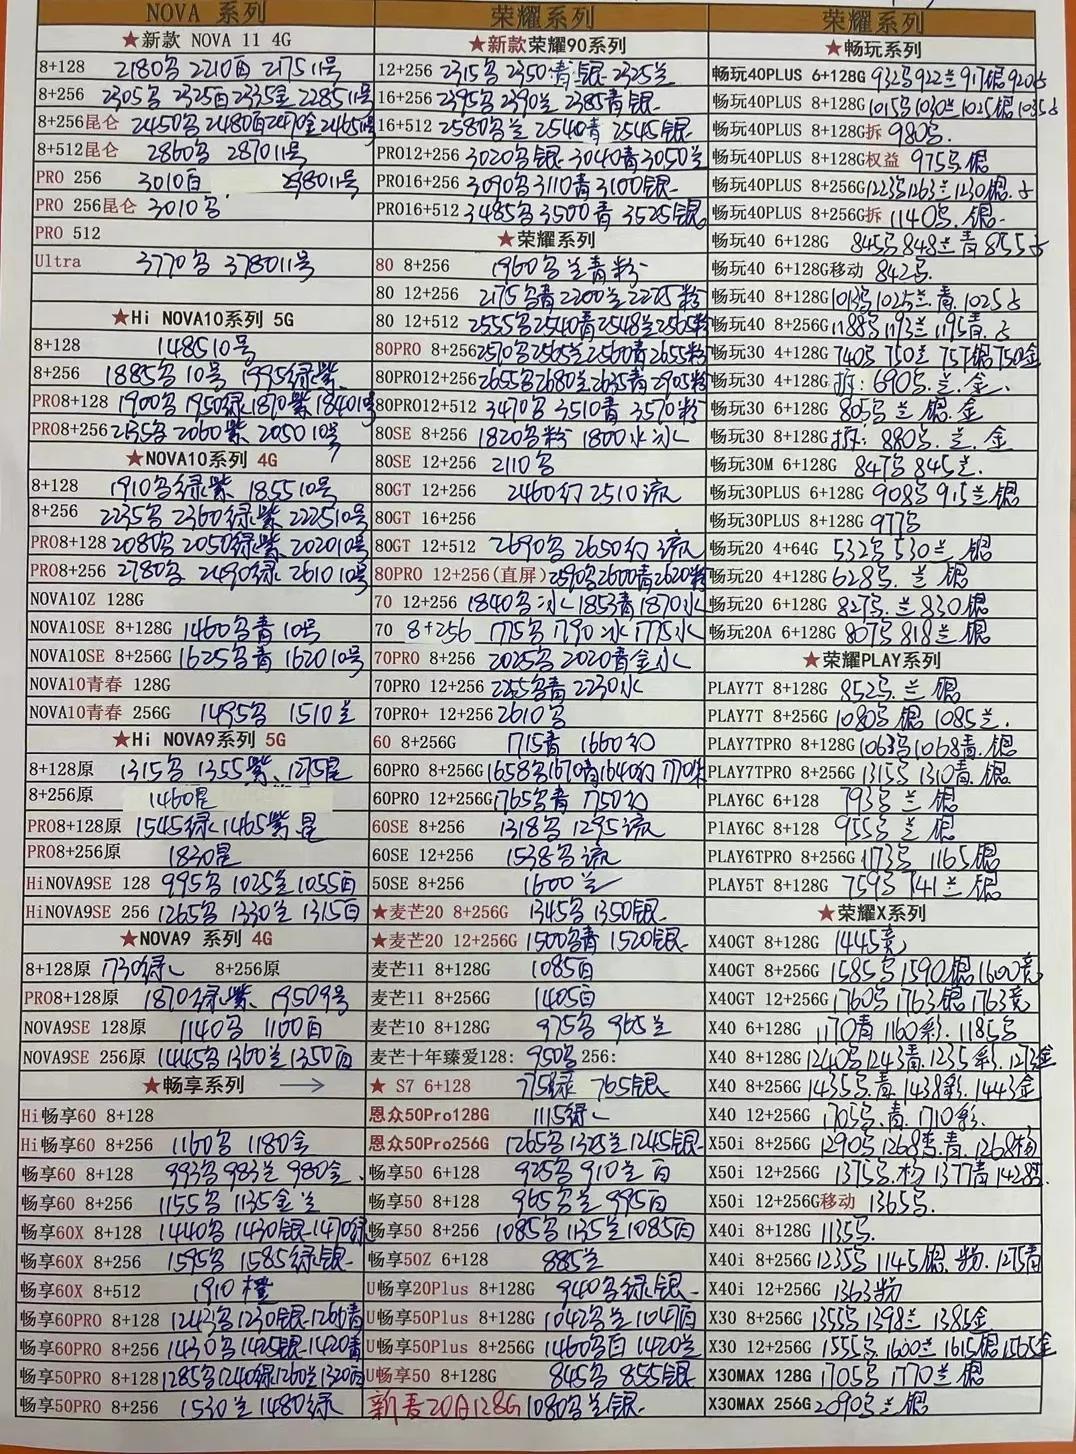 NOVA 系列
★新款 NOVA 11 4G
8+128 2180 2210白 2175 11号
8+256 2305 2325白 2335金 2285 11号
8+256昆仑 2450 2480白 2490金 2465
8+512昆仑 2860 2870 11号
PRO 256 3010白 2980 11号
PRO 256昆仑 3010
PRO 512
Ultra 3770 3780 11号
★Hi NOVA10系列 5G
8+128 1485 10号
8+256 1885 10号 1995绿紫
PRO8+128 1900 1950绿 1870紫 1840
PRO8+256 2060紫 2050 10号
★NOVA10系列 4G
8+128 1910 绿紫 1855 10号
8+256 2235 2360绿紫 2225 10号
PRO8+128 2080 2050绿紫 2020 10号
PRO8+256 2780 2490绿 2610 10号
NOVA10Z 128G
NOVA10SE 8+128G 1460 青 10号
NOVA10SE 8+256G 1625 青 1620 10号
NOVA10青春 128G
NOVA10青春 256G 1495 1510兰
★Hi NOVA9系列 5G
8+128原 1315 1355紫 1275星
8+256原 1460星
PRO8+128原 1545绿 1465紫 星
PRO8+256原 1830星
HiNOVA9SE 128 995 1025兰 1055白
HiNOVA9SE 256 1265 1330兰 1315白
★NOVA9 系列 4G
8+128原 1730绿 8+256原
PRO8+128原 1870绿紫 1950 9号
NOVA9SE 128原 1140 1100白
NOVA9SE 256原 1360兰 1350白
★畅享系列 →
Hi畅享60 8+128
Hi畅享60 8+256 1160 1180金
畅享60 8+128 993 983兰 980金
畅享60 8+256 1155 1135金兰
畅享60X 8+128 1440 1430银 1470绿
畅享60X 8+256 1595 1585绿银
畅享60X 8+512 1910橙
畅享60PRO 8+128 1243 1230银 1260青
畅享60PRO 8+256 1430 1425银 1420青
畅享50PRO 8+128 1285 1240绿 1260兰 1320白
畅享50PRO 8+256 1530兰 1480绿
荣耀系列
★新款荣耀90系列
12+256 2315 2350青银 2325兰
16+256 2395 2390兰 2385青银
16+512 2580 兰 2540青 2545银
PRO12+256 3020 银 3040青 3050兰
PRO16+256 3090 3110青 3100银
PRO16+512 3485 3500青 3525银
★荣耀系列
80 8+256 1960 兰青粉
80 12+256 2175 青 2200兰 2225粉
80 12+512 2555 2540青 2548兰 2565粉
80PRO 8+256 2570 2565兰 2560青 2655粉
80PRO12+256 2655 2680兰 2635青 2905粉
80PRO12+512 3470 3510青 3570粉
80SE 8+256 1820 粉 1800水冰
80SE 12+256 2110
80GT 12+256 2460幻 2510流
80GT 16+256
80GT 12+512 2690 2650幻 流
80PRO 12+256(直屏) 2590 2600青 2620粉
70 12+256 1840 冰 1853青 1870水
70 8+256 1775 1790冰 1775水
70PRO 8+256 2025 2020青金水
70PRO 12+256 2255 青 2230水
70PRO+ 12+256 2610
60 8+256G 1715青 1660幻
60PRO 8+256G 1658 1670青 1640幻
60PRO 12+256G 1765 青 1750幻
60SE 8+256 1318 1295流
60SE 12+256 1538 流
50SE 8+256 1600兰
★麦芒20 8+256G 1345 1350银
★麦芒20 12+256G 1500 青 1520银
麦芒11 8+128G 1085白
麦芒11 8+256G 1405白
麦芒10 8+128G 975 965兰
麦芒十年臻爱128: 950 256:
★ S7 6+128 775绿 765银
恩众50Pro128G 1115绿
恩众50Pro256G 1265 1325兰 1245银
畅享50 6+128 925 910兰白
畅享50 8+128 965 兰 995白
畅享50 8+256 1085 1135兰 1085白
畅享50Z 6+128 885兰
U畅享20Plus 8+128G 940 绿银
U畅享50Plus 8+128G 1042 兰 1047白
U畅享50Plus 8+256G 1460 白 1420兰
U畅享50 8+128G 845 855银
新麦20 128G 1080 兰银
荣耀系列
★畅玩系列
畅玩40PLUS 6+128G 932 922兰 917银 920
畅玩40PLUS 8+128G 1015 1030兰 1025银 1035
畅玩40PLUS 8+128G拆 980
畅玩40PLUS 8+128G权益 975 银
畅玩40PLUS 8+256G 1223 1263兰 1230银
畅玩40PLUS 8+256G拆 1140 银
畅玩40 6+128G 845 848兰青 855
畅玩40 6+128G移动 842
畅玩40 8+128G 1013 1025兰青 1025
畅玩40 8+256G 1188 1193兰 1195青
畅玩30 4+128G 740 750兰 757银 750金
畅玩30 4+128G 拆: 690 兰 金
畅玩30 6+128G 805 兰 银 金
畅玩30 8+128G 拆: 880 兰 金
畅玩30M 6+128G 847 845兰
畅玩30PLUS 6+128G 908 915兰银
畅玩30PLUS 8+128G 977
畅玩20 4+64G 532 530兰 银
畅玩20 4+128G 628 兰 银
畅玩20 6+128G 827 兰 830银
畅玩20A 6+128G 807 818兰 银
★荣耀PLAY系列
PLAY7T 8+128G 852 兰 银
PLAY7T 8+256G 1080 银 1085兰
PLAY7TPRO 8+128G 1063 1068青 银
PLAY7TPRO 8+256G 1315 1310青 银
PLAY6C 6+128 793 兰 银
PlAY6C 8+128 955 兰 银
PLAY6TPRO 8+256G 1173 1165银
PLAY5T 8+128G 759 741兰 银
★荣耀X系列
X40GT 8+128G 1445竞
X40GT 8+256G 1585 1590银 1600竞
X40GT 12+256G 1760 1763银 1763竞
X40 6+128G 1170青 1160彩 1185
X40 8+128G 1240 1243青 1235彩 1273金
X40 8+256G 1435 青 1438彩 1443金
X40 12+256G 1705 青 1710彩
X50i 8+256G 1290 1268 青 1268粉
X50i 12+256G 1375 粉 1377青 1428
X50i 12+256G移动 1365
X40i 8+128G 1135
X40i 8+256G 1235 1145银 粉 1275青
X40i 12+256G 1363粉
X30 8+256G 1355 1398兰 1385金
X30 12+256G 1555 1600兰 1615银 1565金
X30MAX 128G 1705 1770兰 银
X30MAX 256G 2090 兰 银